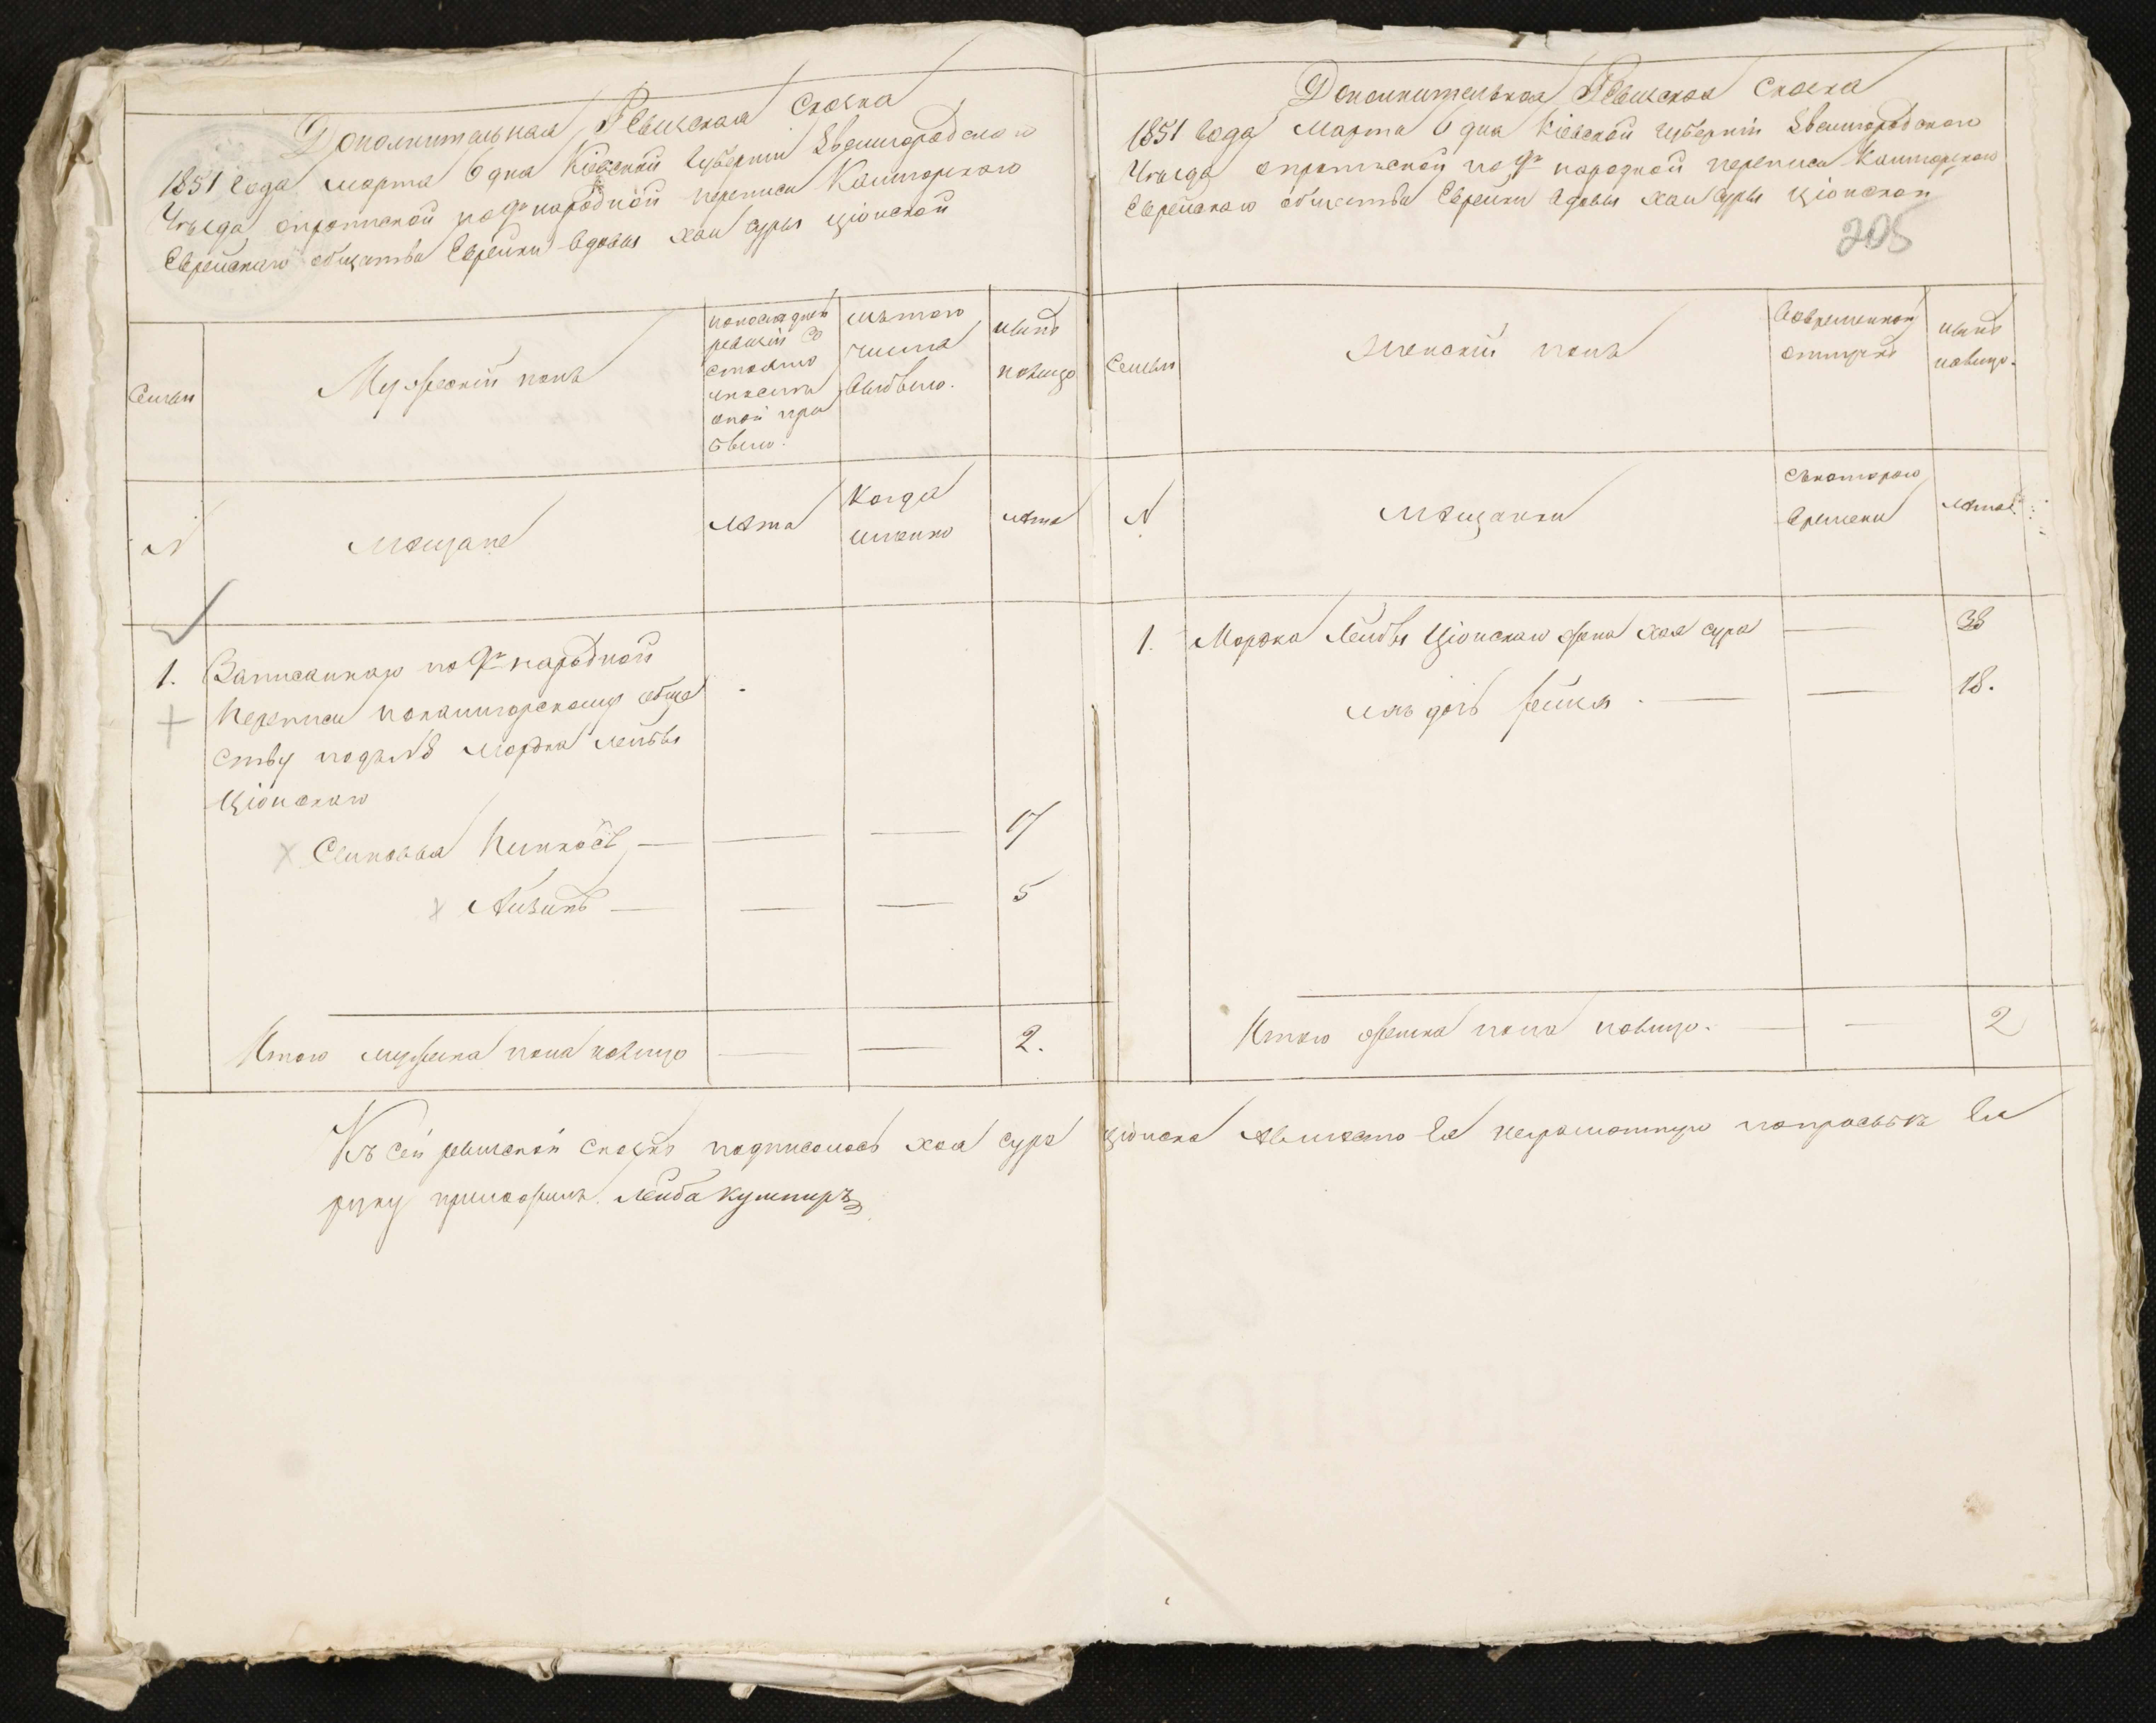 Дополнительная Ревизская сказка
1851 года марта 6 дня Кіевской Губерніи Звенигородскаго
Уѣзда опропиской по 9й народной переписи Катторскаго
Еврейскаго общества Еврейки вдовы Хаи Суры Ціонской
Семьи
Мужескій полъ
по последней
ревизіи со
стояло
и после
оной при
было.
изъ того
числа
выбыло.
ныне
налицо
N
Мещане
Лета
Когда
именно
Лета
1. Записаннаго по 9й народной
переписи по обще
ству подъ N 8 Мордка Лейбы
Ціонскаго
Сыновья Пинкасъ 17
Айзикъ 5
Итого мужеска пола налицо 2.
Дополнительная Ревизская сказка
1851 года Марта 6 дня Кіевской Губерніи Звенигородскаго
Уѣзда по 9й народной переписи
Еврейскаго общества Еврейки вдовы Хаи Суры Ціонской
205
Семьи
Женскій полъ
Во временной
отлучке
ныне
налицо.
N
Мещанки
Съ котораго
времени
Лета
1. Мордка Лейбы Ціонскаго жена Хая Сура 38
ихъ дочь Фейга 18.
Итого женска пола налицо. 2
Къ сей ревизской сказке подписалась Хая Сура Ціонска а вместо Ея неграмотную по просьбе Ея
руку приложилъ Лейба Кушниръ